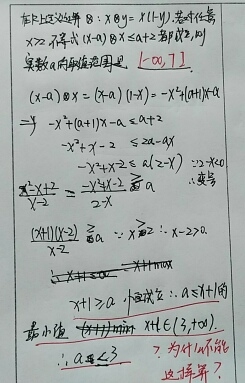 在R上定义运算⊗: x⊗y=x(1-y),若对任意
x>2,不等式(x-a)⊗x≤a+2都成立,则
实数a的取值范围是 (-∞,7]
(x-a)⊗x=(x-a)(1-x)=-x²+(a+1)x-a
⇒ -x²+(a+1)x-a≤a+2
-x²+x-2 ≤2a-ax
-x²+x-2≤a(2-x) ∵2-x<0
∴变号
x²-x+2/x-2 = -x²+x-2/2-x ≥a
(x+1)(x-2)/x-2 ≥a ∵x>2 ∴x-2>0.
x+1≥a 恒成立 ∴a≤x+1的
最小值 (x+1)min x+1∈(3,+∞).
∴a≤3 ?为什么不能
这样算?